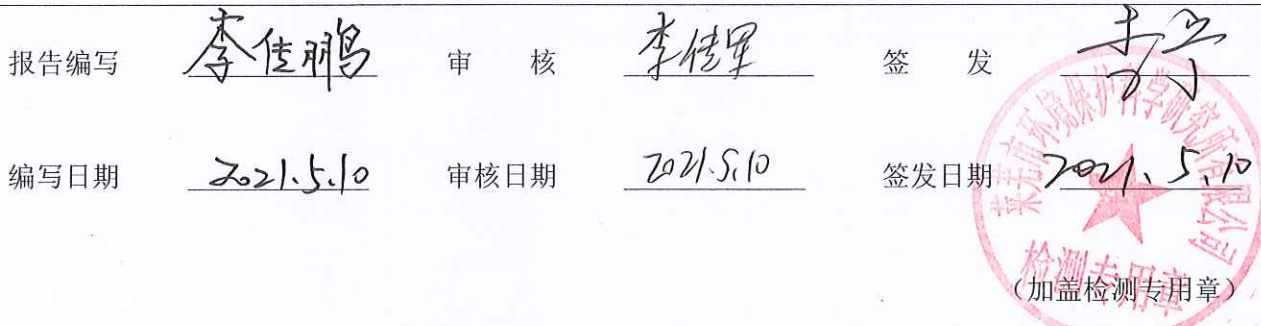 报告编写 李佳鹏 审 核 李佳军 签 发
编写日期 2021.5.10 审核日期 2021.5.10 签发日期 2021.5.10
莱芜市环境保护科学研究所有限公司
检测专用章
（加盖检测专用章）